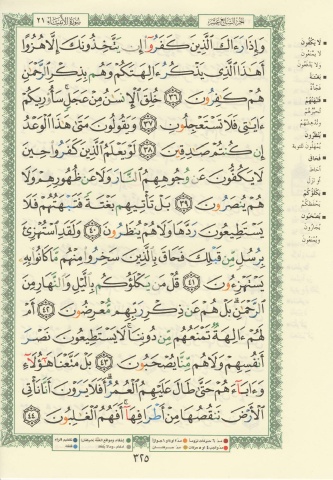 الجزء السابع عشر
سورة الأنبياء ٢١
وَإِذَا رَءَاكَ ٱلَّذِينَ كَفَرُوٓا۟ إِن يَتَّخِذُونَكَ إِلَّا هُزُوًا
أَهَٰذَا ٱلَّذِى يَذْكُرُ ءَالِهَتَكُمْ وَهُم بِذِكْرِ ٱلرَّحْمَٰنِ
هُمْ كَٰفِرُونَ ٣٦ خُلِقَ ٱلْإِنسَٰنُ مِنْ عَجَلٍ سَأُو۟رِيكُمْ
ءَايَٰتِى فَلَا تَسْتَعْجِلُونِ ٣٧ وَيَقُولُونَ مَتَىٰ هَٰذَا ٱلْوَعْدُ
إِن كُنتُمْ صَٰدِقِينَ ٣٨ لَوْ يَعْلَمُ ٱلَّذِينَ كَفَرُوا۟ حِينَ
لَا يَكُفُّونَ عَن وُجُوهِهِمُ ٱلنَّارَ وَلَا عَن ظُهُورِهِمْ وَلَا
هُمْ يُنصَرُونَ ٣٩ بَلْ تَأْتِيهِم بَغْتَةً فَتَبْهَتُهُمْ فَلَا
يَسْتَطِيعُونَ رَدَّهَا وَلَا هُمْ يُنظَرُونَ ٤٠ وَلَقَدِ ٱسْتُهْزِئَ
بِرُسُلٍ مِّن قَبْلِكَ فَحَاقَ بِٱلَّذِينَ سَخِرُوا۟ مِنْهُم مَّا كَانُوا۟ بِهِۦ
يَسْتَهْزِءُونَ ٤١ قُلْ مَن يَكْلَؤُكُم بِٱلَّيْلِ وَٱلنَّهَارِ مِنَ
ٱلرَّحْمَٰنِ بَلْ هُمْ عَن ذِكْرِ رَبِّهِم مُّعْرِضُونَ ٤٢ أَمْ
لَهُمْ ءَالِهَةٌ تَمْنَعُهُم مِّن دُونِنَا لَا يَسْتَطِيعُونَ نَصْرَ
أَنفُسِهِمْ وَلَا هُم مِّنَّا يُصْحَبُونَ ٤٣ بَلْ مَتَّعْنَا هَٰٓؤُلَآءِ
وَءَابَآءَهُمْ حَتَّىٰ طَالَ عَلَيْهِمُ ٱلْعُمُرُ أَفَلَا يَرَوْنَ أَنَّا نَأْتِى
ٱلْأَرْضَ نَنقُصُهَا مِنْ أَطْرَافِهَآ أَفَهُمُ ٱلْغَٰلِبُونَ ٤٤
٣٢٥
لا يكفّون
لا يمنعون
بغتة
فجأة
فتبهتهم
ينظرون
يمهلون للتوبة
فحاق
أحاط
أو نزل
يكلؤكم
يحفظكم
يصحبون
يجارون
ويمنعون